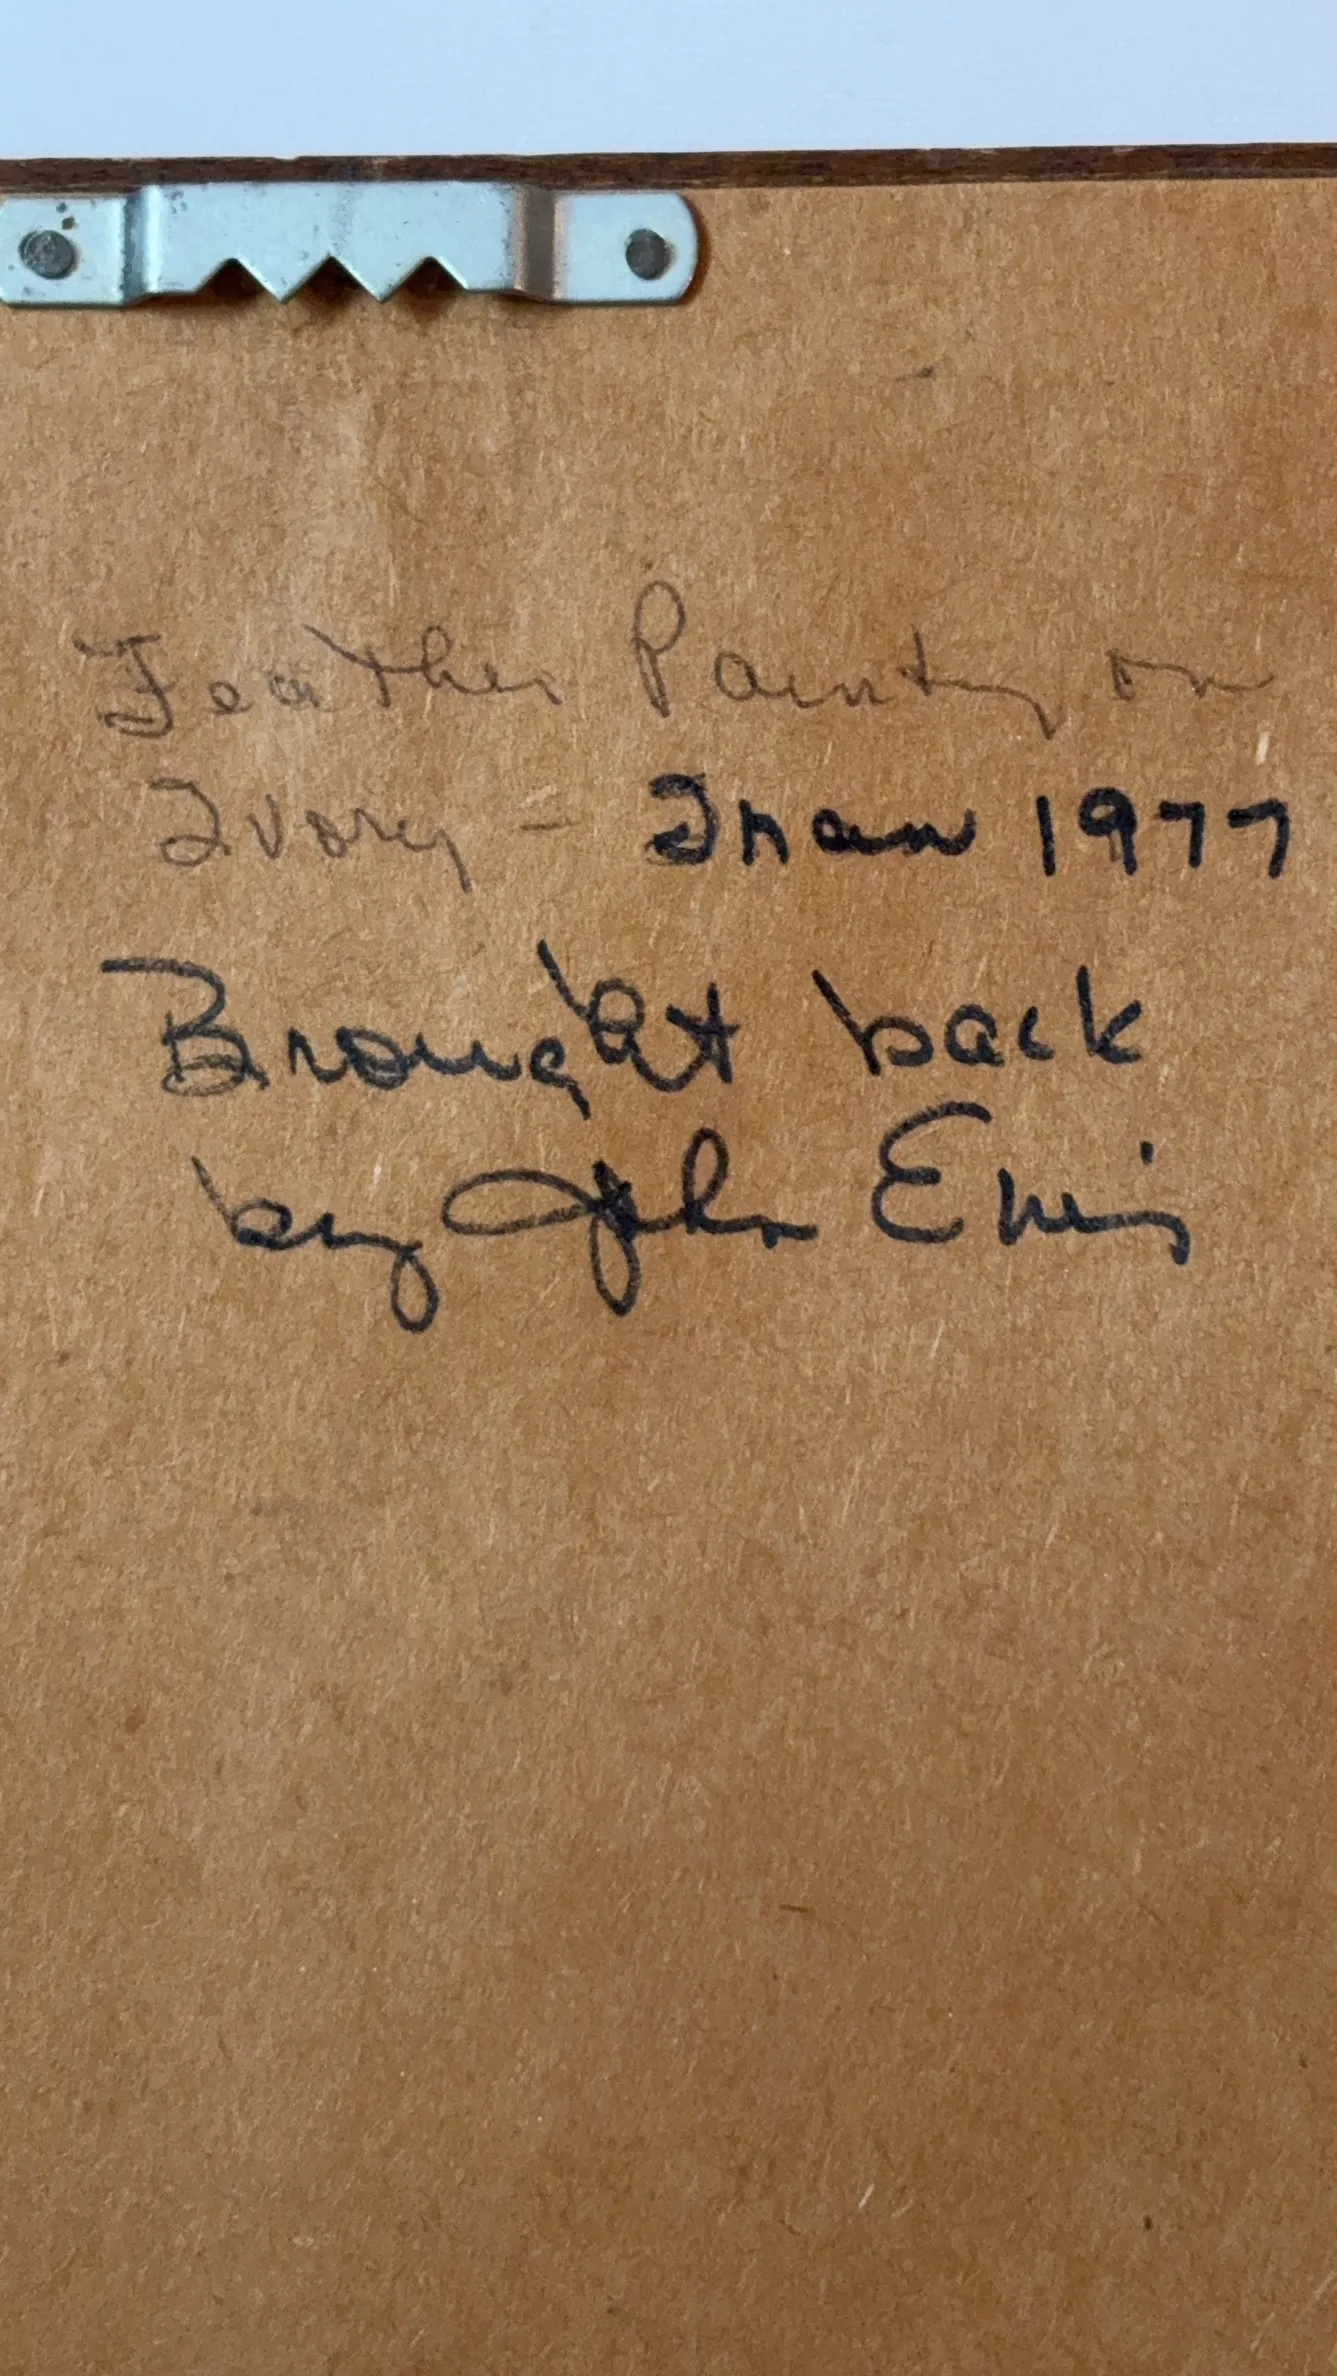 Feather Painting on
Ivory - Iran 1977
Brought back
by John